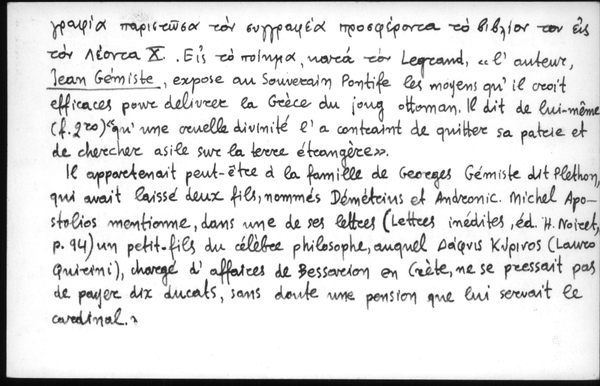 γραφία παριστῶσα τὸν συγγραφέα προσφέροντα τὸ βιβλίον του εἰς
τὸν Λέοντα Χ. Εἰς τὸ ποίημα, κατὰ τὸν Legrand, «l'auteur,
Jean Gémiste, expose au Souverain Pontife les moyens qu'il croit
efficaces pour délivrer la Grèce du joug ottoman. Il dit de lui-même
(f. 2ro) "qu'une cruelle divinité l'a contraint de quitter sa patrie et
de chercher asile sur la terre étrangère».
Il appartenait peut-être à la famille de Georges Gémiste dit Plethon,
qui avait laissé deux fils, nommés Démétrius et Andronic. Michel Apo-
stolios mentionne, dans une de ses lettres (Lettres inédites, éd. H. Noiret,
p. 94) un petit-fils du célèbre philosophe, auquel Λαῦρος Κυρῖνος (Lauro
Quirini), chargé d'affaires de Bessarion en Crète, ne se pressait pas
de payer dix ducats, sans doute une pension que lui servait le
cardinal.»